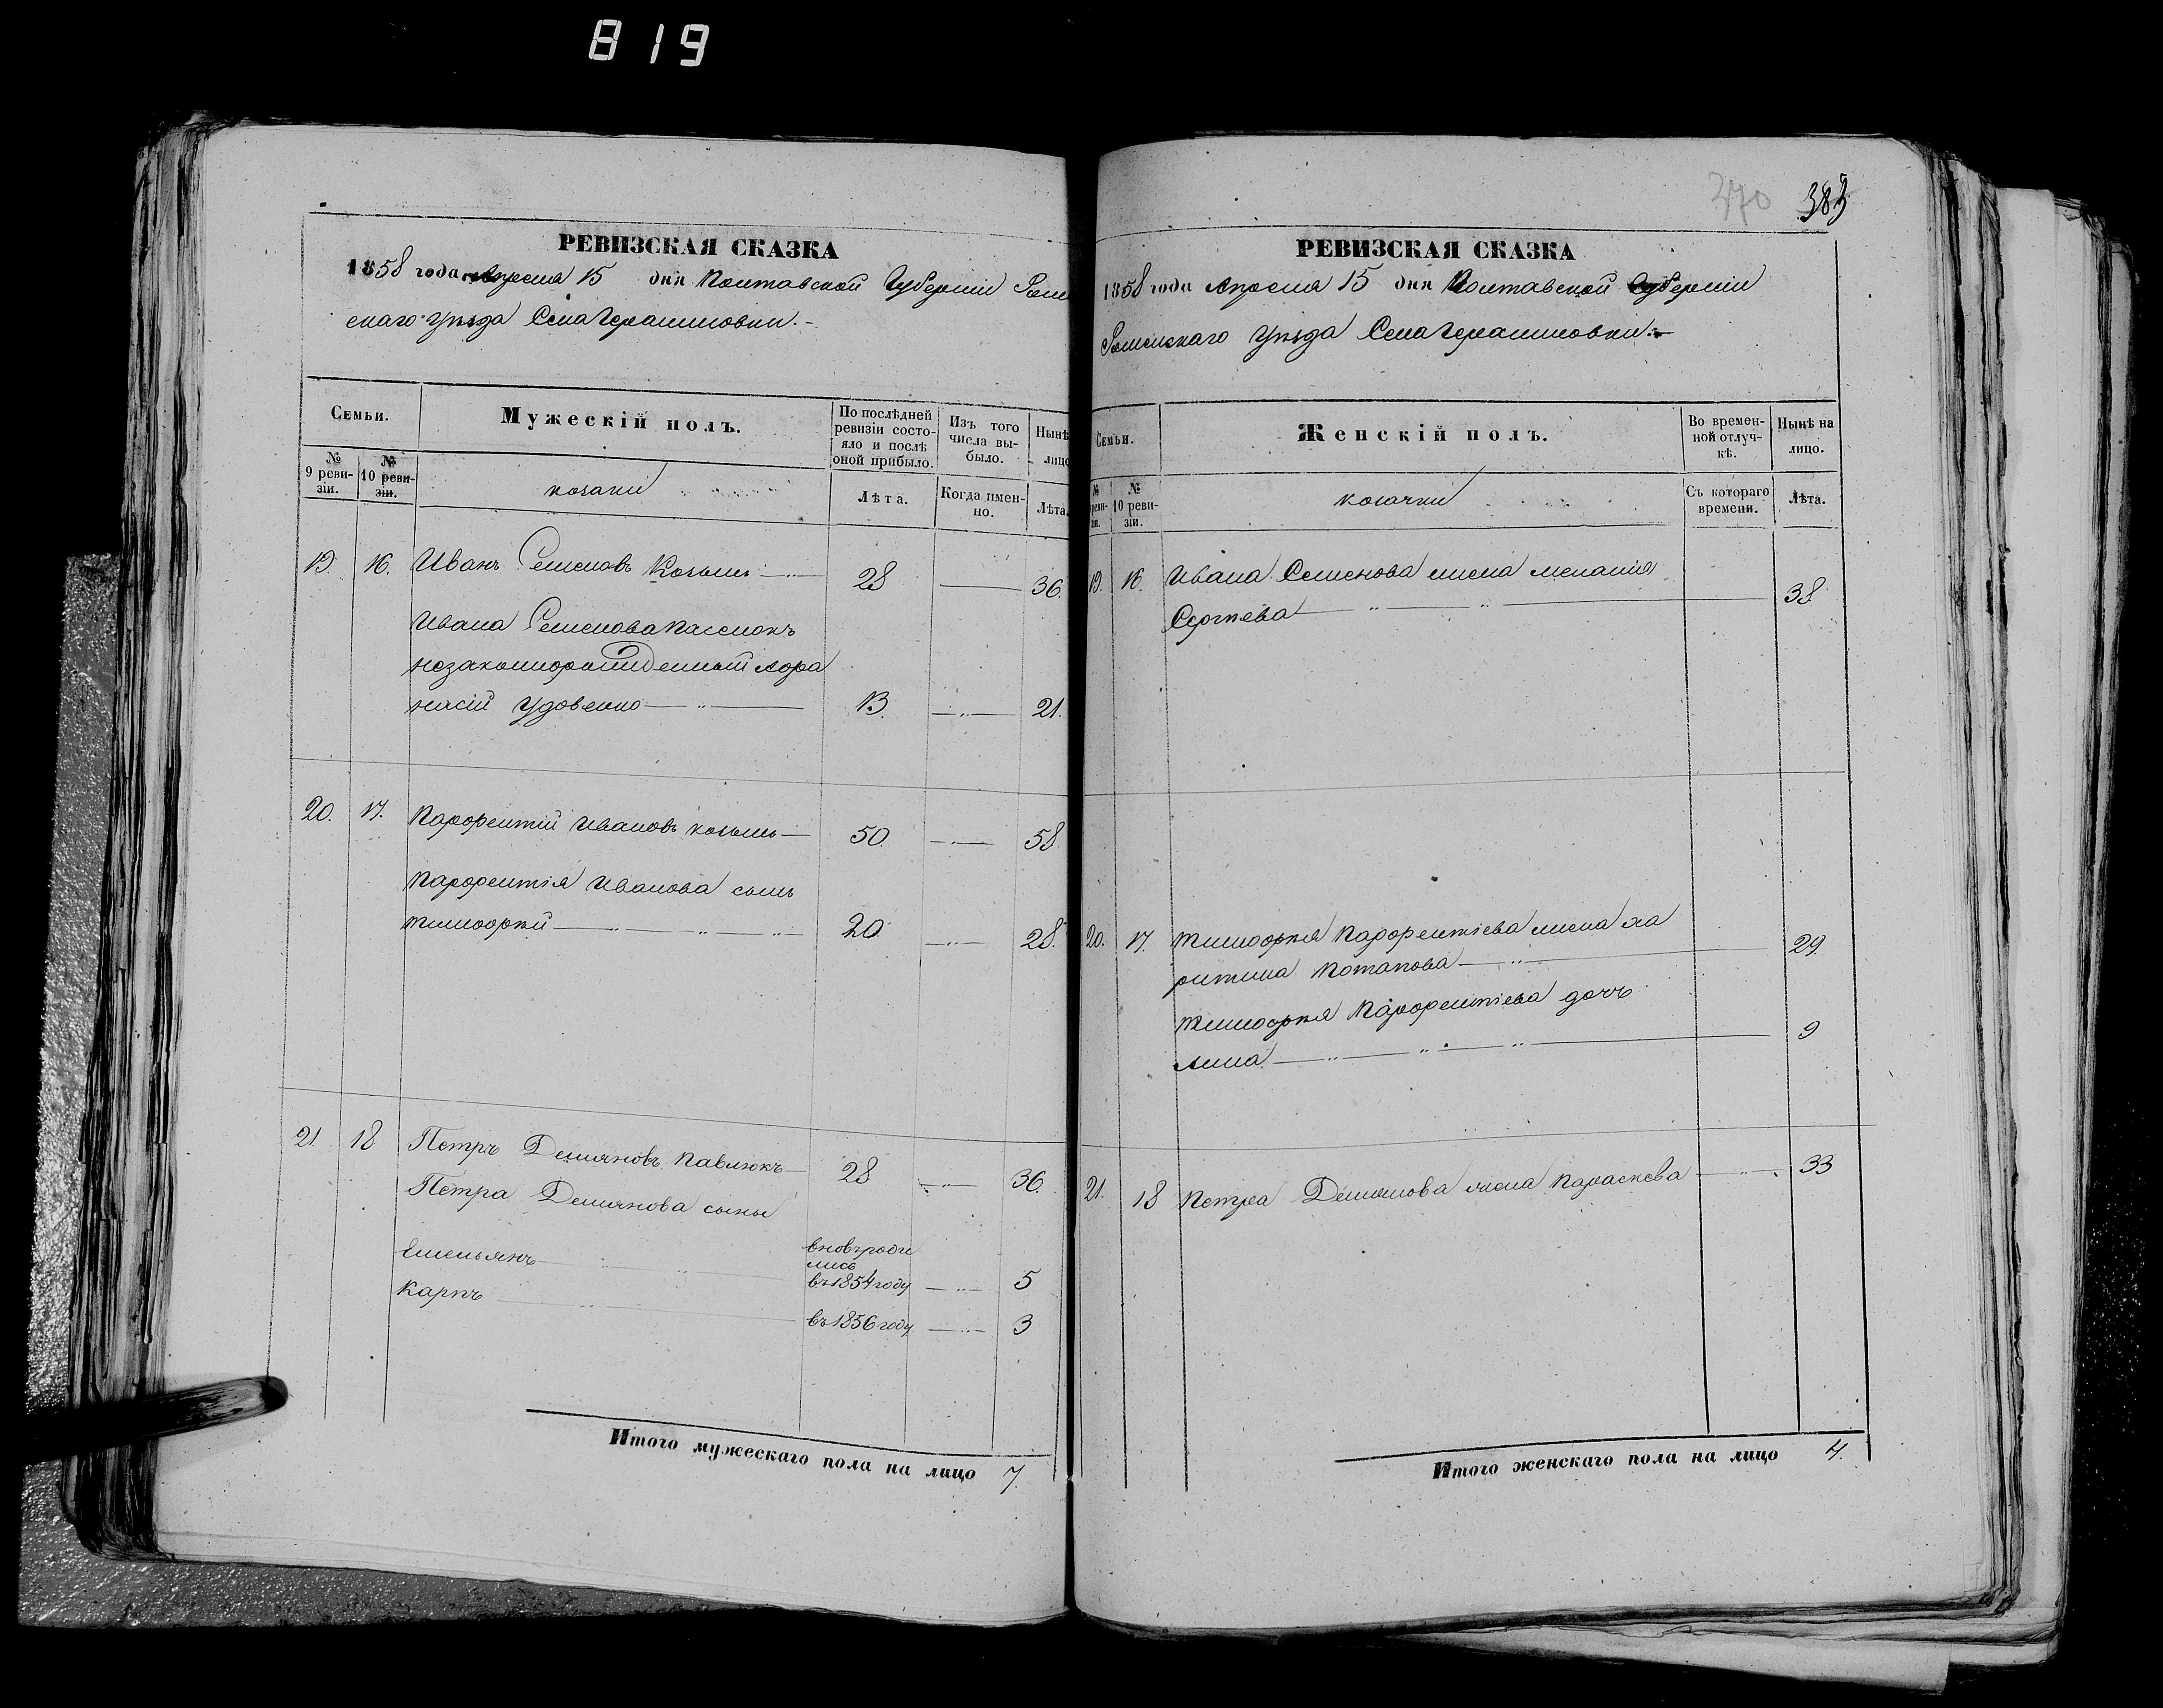 819
РЕВИЗСКАЯ СКАЗКА
1858 года Апреля 15 дня Полтавской Губерніи Ромен
скаго уѣзда Села Герашповки.
Семьи.
Мужескій полъ.
По послѣдней ревизіи состояло и послѣ оной прибыло.
Изъ того числа выбыло.
Нынѣ лицо
№ 9 ревизіи.
№ 10 ревизіи.
козаки
Лѣта.
Когда именно.
Лѣта.
19. 16. Иванъ Семеновъ 28 36.
Ивана Семенова пасенокъ
незаконнорожденный Афа
насій Удовенко 13. 21.
20. 17. Парфентій Ивановъ 50. 58
Парфентія Иванова сынъ
Тимофей 20. 28.
21 18 Петръ Демяновъ Павлюкъ 28 36.
Петра Демянова сыны
Емельянъ вновьроди
лись
въ 1854 году 5
Карпъ
въ 1856 году 3
Итого мужескаго пола на лицо 7.
370 383
РЕВИЗСКАЯ СКАЗКА
1858 года Апреля 15 дня Полтавской Губерніи
Роменскаго уѣзда Села
Семьи.
Женскій полъ.
Во временной отлучкѣ.
Нынѣ на лицо.
№ реви- зіи.
№ 10 ревизіи.
козачки
Съ котораго времени.
Лѣта.
19. 16. Ивана Семенова жена Меланія
Сергѣева 38.
20. 17. Тимофея Парфентіева жена Ха
ритина Потапова 29.
Тимофея Парфентіева дочь
Анна 9
21. 18 Петра Демянова жена Параскева 33
Итого женскаго пола на лицо 4.